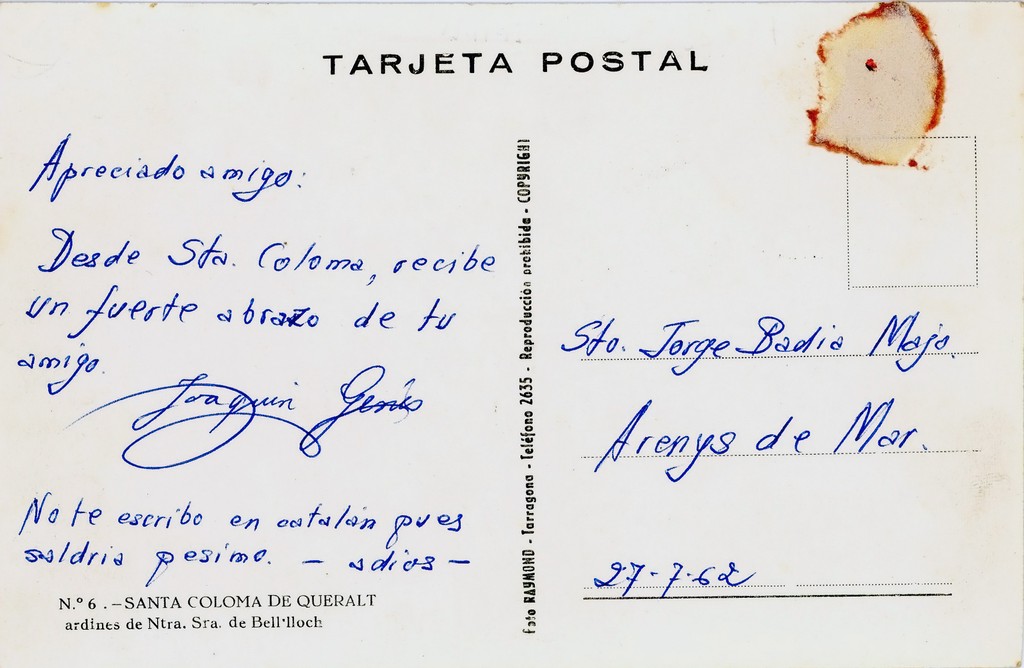 TARJETA POSTAL
Apreciado amigo:
Desde Sta. Coloma, recibe
un fuerte abrazo de tu
amigo.
Joaquin
No te escribo en catalán pues
saldria pesimo. - adios -
N.º 6 .-SANTA COLOMA DE QUERALT
ardines de Ntra. Sra. de Bell'lloch
Foto RAYMOND - Tarragona - Teléfono 2635 - Reproducción prohibida - COPYRIGHT
Sto. Jorge Badia Majo.
Arenys de Mar.
27-7-62